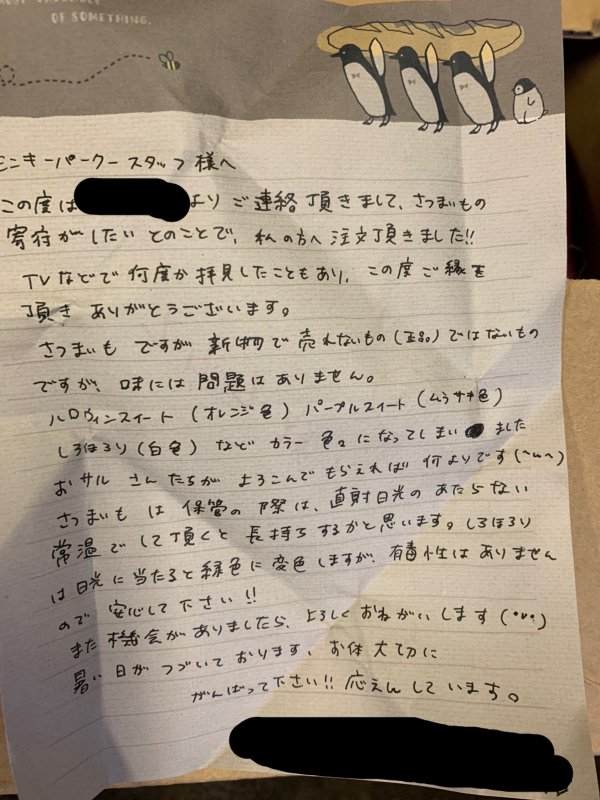 OF SOMETHING.
モンキーパークースタッフ様へ
この度は よりご連絡頂きまして、さつまいもの
寄付がしたいとのことで、私の方へ注文頂きました!!
TVなどで何度か拝見したこともあり、この度ご縁を
頂きありがとうございます。
さつまいもですが新物で売れないもの(正品)ではないもの
ですが、味には問題はありません。
ハロウィンスイート(オレンジ色)パープルスイート(ムラサキ色)
しろほろり(白色)などカラー色々になってしまいました
おサルさんたちがよろこんでもらえれば何よりです(^ω^)
さつまいもは保管の際は、直射日光のあたらない
常温でして頂くと長持ちするかと思います。しろほろり
は日光に当たると緑色に変色しますが、有毒性はありません
ので安心して下さい!!
また機会がありましたら、よろしくおねがいします(・v・)
暑い日がつづいております、お体大切に
がんばって下さい!!応えんしています。